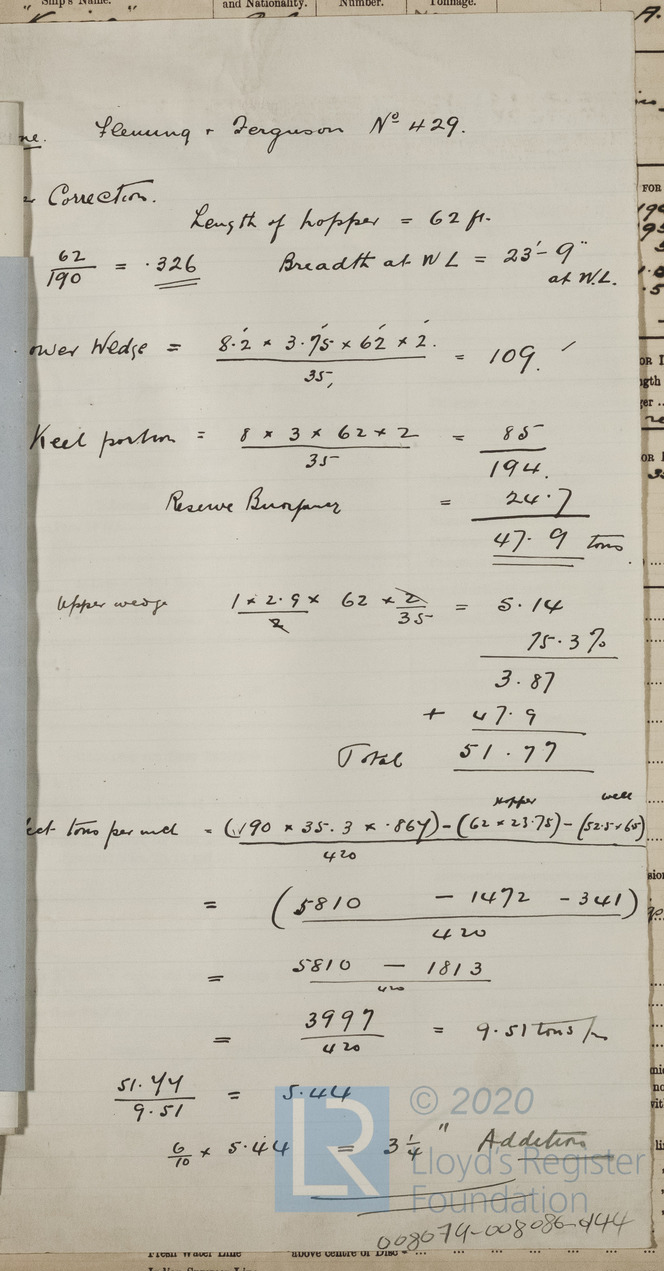 Ship's Name.
and Nationality.
Number.
Tonnage.
Fleming & Ferguson No 429.
Correction.
Length of hopper = 62 ft.
62/190 = .326 Breadth at WL = 23'-9"
at W.L.
ower Wedge = 8.2 × 3.75 × 62 × 2./35, = 109.
Keel portion = 8 × 3 × 62 × 2/35 = 85
194.
Reserve Buoyancy = 24.7
47.9 tons.
Upper wedge 1 × 2.9 ×/2 62 × 2/35 = 5.14
75.3%
3.87
+ 47.9
Total 51.77
hopper well
ect tons per inch = (190 × 35.3 × .867) - (62 × 23.75) - (52.5 × 6.5)/420
= (5810 - 1472 - 341)/420
= 5810 - 1813/420
= 3997/420 = 9.51 tons/in
51.77/9.51 = 5.44
6/10 × 5.44 = 3 1/4 " Addition
© 2020
Lloyd's Register
Foundation
LR
008079-008086-0144
Fresh Water Line above centre of Disc